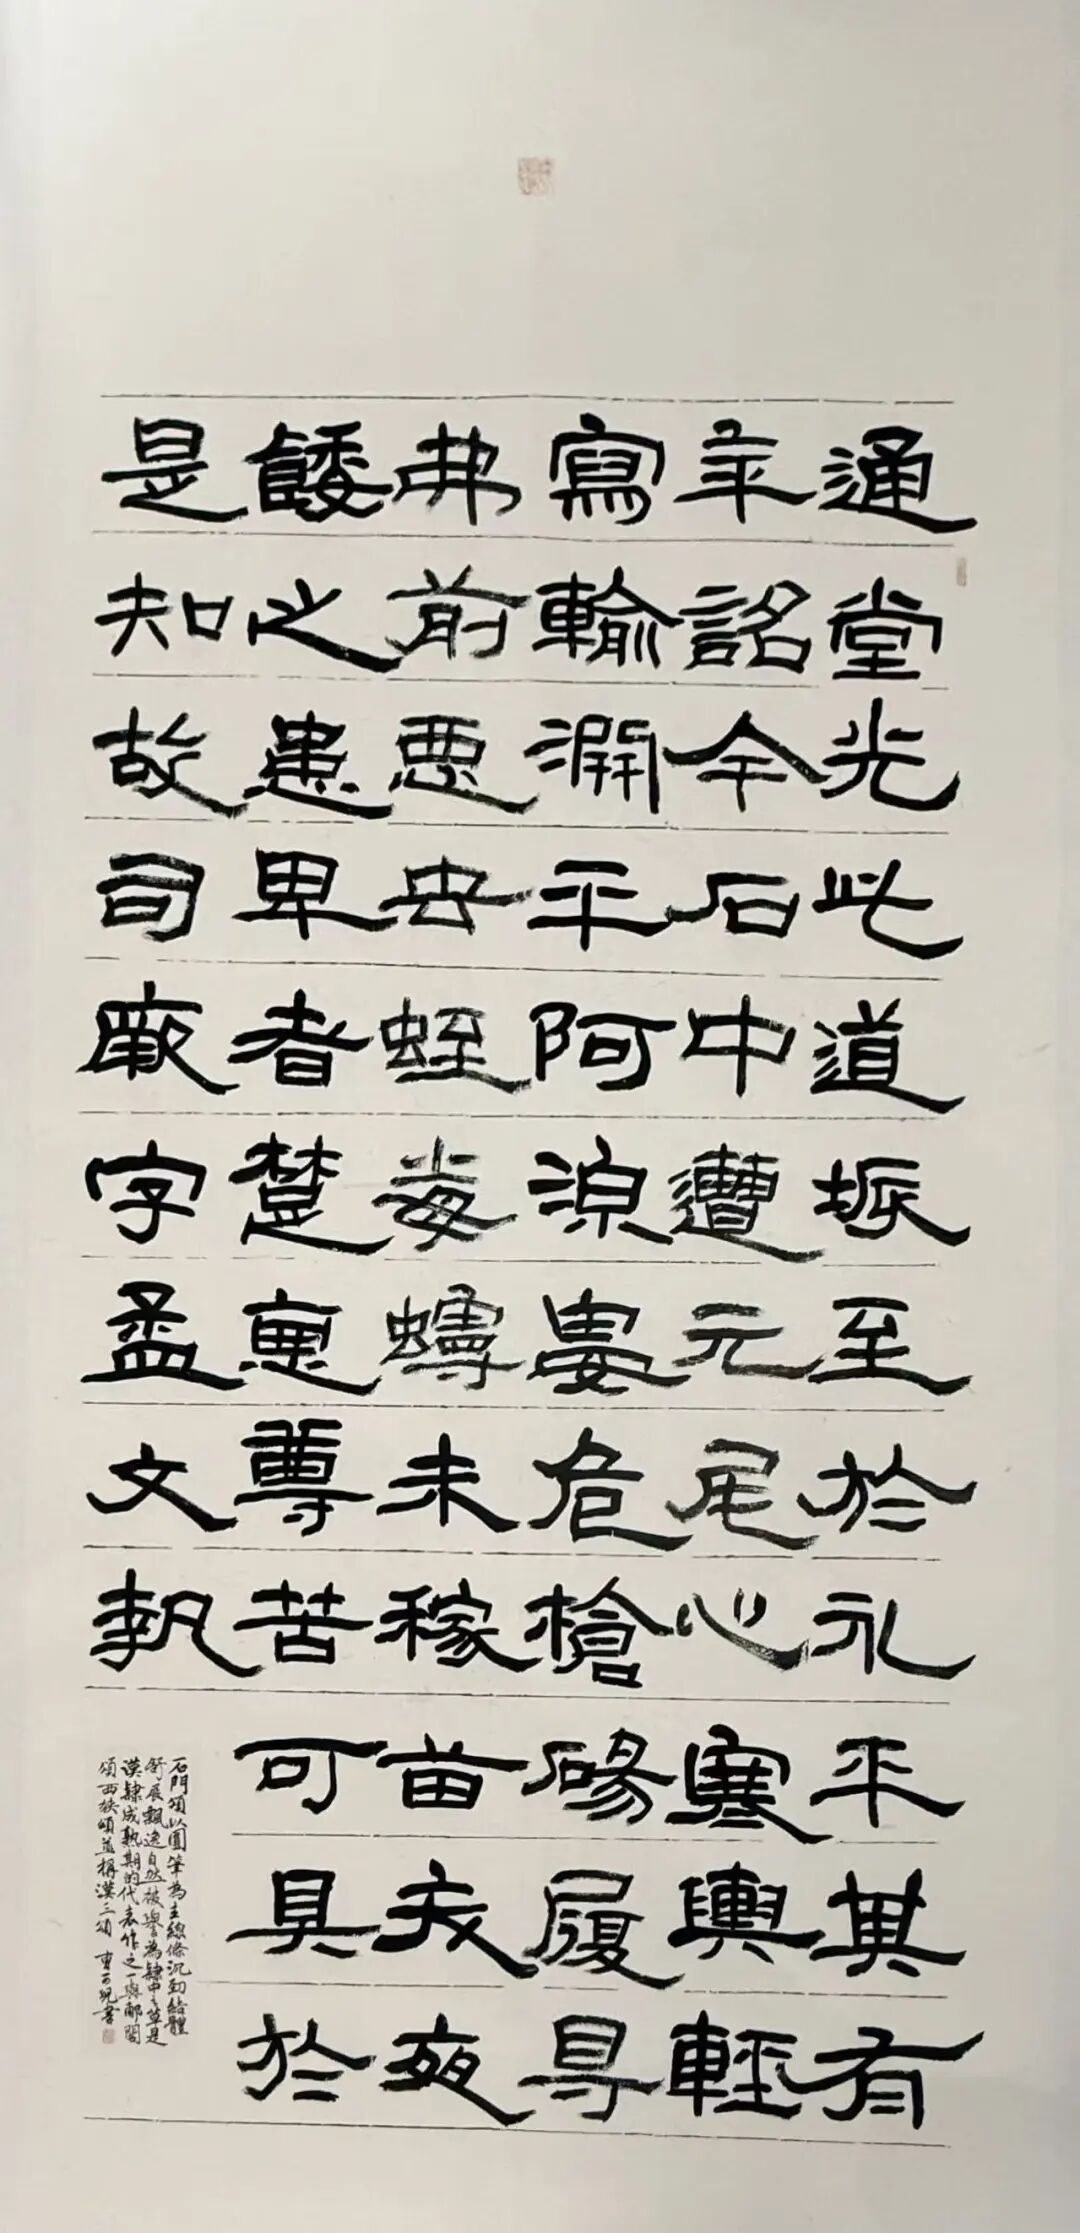 通堂光此道垓至於永平其有
年詔午石中遭元尾心寒輿輕
寫輸淵平阿湶晏危槍碭履㝵
弗前惡虫蛭毒蟃未稼苗夭
餧之患卑者楚惡尊苦可具於
是知故司厥字孟文執
石門頌以圓筆為主線條沉勁結體
舒展飄逸自然被譽為隸中之草是
漢隸成熟期的代表作之一與郙閣
頌西狹頌並稱漢三頌 曹可書